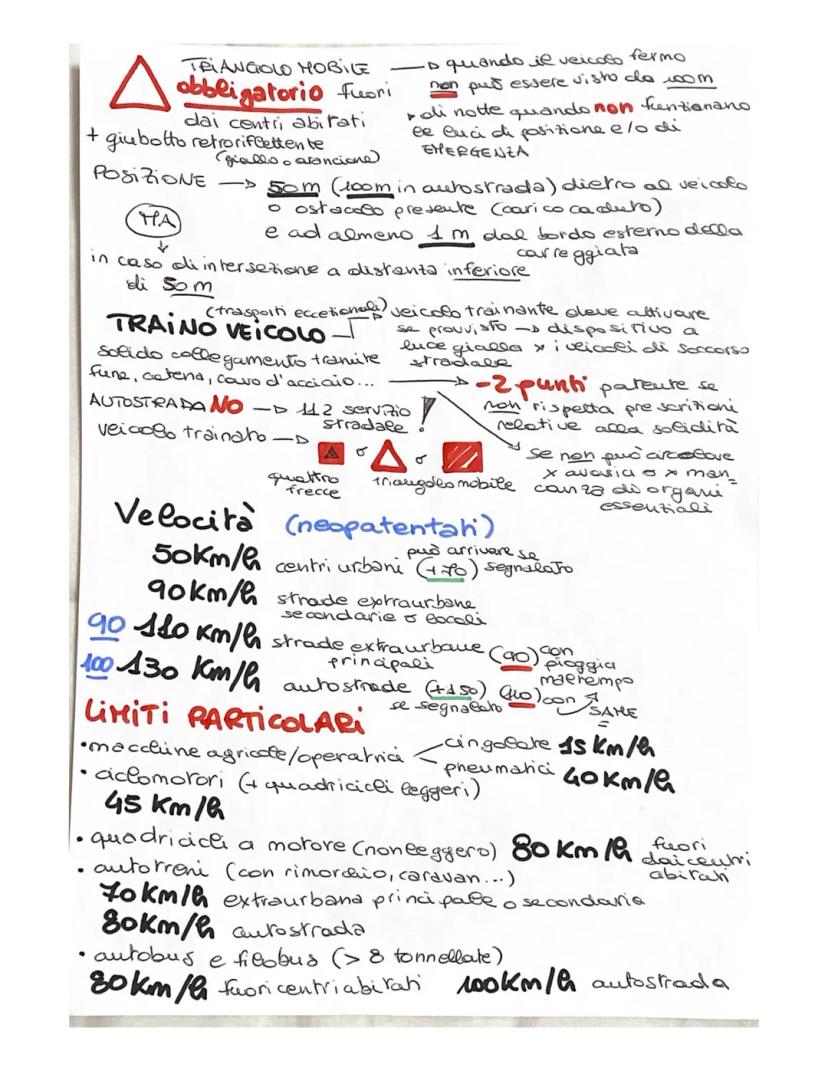 TRIANGOLO MOBILE → quando il veicolo fermo
obbligatorio fuori non può essere visto da 100m
dai centri abitati → di notte quando non funzionano
+ giubotto retroriflettente le luci di posizione e/o di
(giallo o arancione) EMERGENZA
POSIZIONE → 50m (100m in autostrada) dietro al veicolo
o ostacolo presente (carico caduto)
MA e ad almeno 1 m dal bordo esterno della
carreggiata
in caso di intersezione a distanza inferiore
di 50m
(trasporti eccezionali) veicolo trainante deve attivare
TRAINO VEICOLO se provvisto → dispositivo a
luce gialla x i veicoli di soccorso
stradale
solido collegamento tramite
fune, catena, cavo d'acciaio... → -2 punti patente se
AUTOSTRADA NO → 112 servizio stradale ! non rispetta prescrizioni
relative alla solidità
veicolo trainato → o o se non può circolare
x avaria o x man=
quattro frecce triangolo mobile canza di organi
essenziali
Velocità (neopatentati)
50 Km/h centri urbani (+70) può arrivare se segnalato
90 Km/h strade extraurbane
secondarie o locali
90 110 Km/h strade extraurbane principali (90) con pioggia maltempo
100 130 Km/h autostrade (+150) se segnalato (110) con SAME
LIMITI PARTICOLARI
• macchine agricole/operatrici cingolate 15 Km/h
pneumatici 40 Km/h
• ciclomotori (+ quadricicli leggeri)
45 Km/h
• quadricicli a motore (non leggero) 80 Km/h fuori dai centri abitati
• autotreni (con rimorchio, caravan...)
70 Km/h extraurbana principale o secondaria
80 Km/h autostrada
• autobus e filobus (> 8 tonnellate)
80 Km/h fuori centri abitati 100 Km/h autostrada